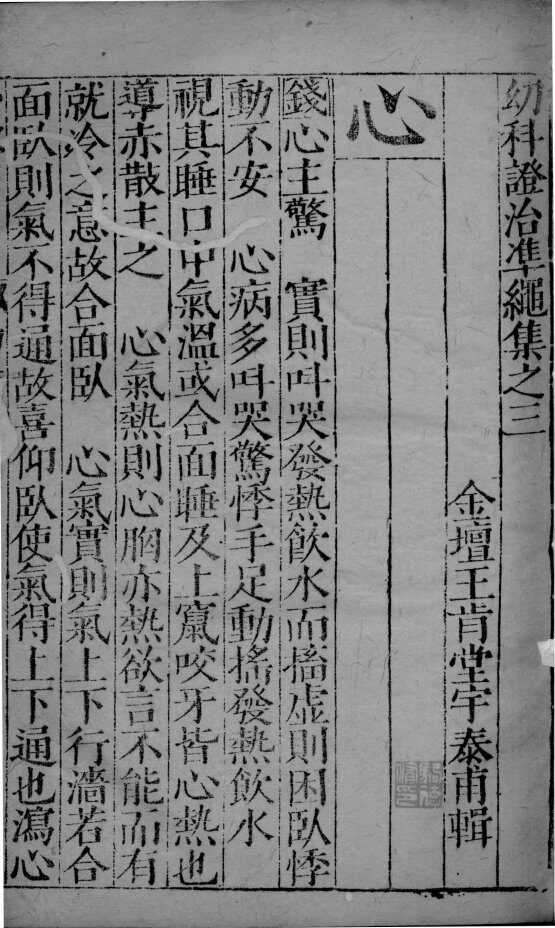 幼科證治準繩集之三
金壇王肯堂宇泰甫輯
心
錢心主驚　實則叫哭發熱飲水而搐虛則困臥悸
動不安　心病多叫哭驚悸手足動搖發熱飲水
視其睡口中氣溫或合面睡及上竄咬牙皆心熱也
導赤散主之　心氣熱則心胸亦熱欲言不能而有
就冷之意故合面臥　心氣實則氣上下行濇若合
面臥則氣不得通故喜仰臥使氣得上下通也瀉心